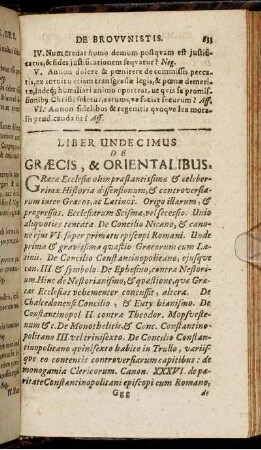 DE BROVVNISTIS. 833
IV. Num credat homo demum postquam est justifi-
catus, & fides justificationem sequatur? Neg.
V. Annon dolere & pœnitere de commissis pecca-
tis, ex intuitu etiam transgressæ legis, & pœnæ demeri-
tæ, indeq; humiliari animo oporteat, ut quis se promis-
sionibꝰ Christi soletur, earumve faciat securum? Aff.
VI? Annon fidelibus & regenitis quoque lex mora-
lis prædicanda sit? Aff.
LIBER UNDECIMUS
DE
GRÆCIS, & ORIENTALIBUS.
GRæcæ Ecclesiæ olim præstantissimæ & celeber-
rimæ. Historia dissensionum, & controversia-
rum inter Græcos, ac Latinos. Origo illarum, &
progressus. Ecclesiarum Scisma, vel secessio. Unio
aliquoties tentata. De Concilio Nicæno, & cano-
ne ejus VI. super primatu episcopi Romani. Unde
prima & gravissima quæstio Græcorum cum La-
tinis. De Concilio Constantinopolitano, ejusque
can. III. & symbolo. De Ephesino, contra Nesto-
rium. Hinc de Nestorianismo, & quæstione, quæ Græ-
cas Ecclesias vehementer concussit, altera. De
Chalcedonensi Concilio, & Eutychianismo. De
Constantinopol II. contra Theodor. Mopsveste-
num & c. De Monothelitis, & Conc. Constantino-
politano III. vel trinisexto. De Concilio Constan-
tinopolitano quinisexto habito in Trullo, variis-
que eo contentis controversiarum capitibus: de
monogamia Clericorum. Canon. XXXVI. de pa-
ritate Constantinopolitani episcopi cum Romano,
Ggg de